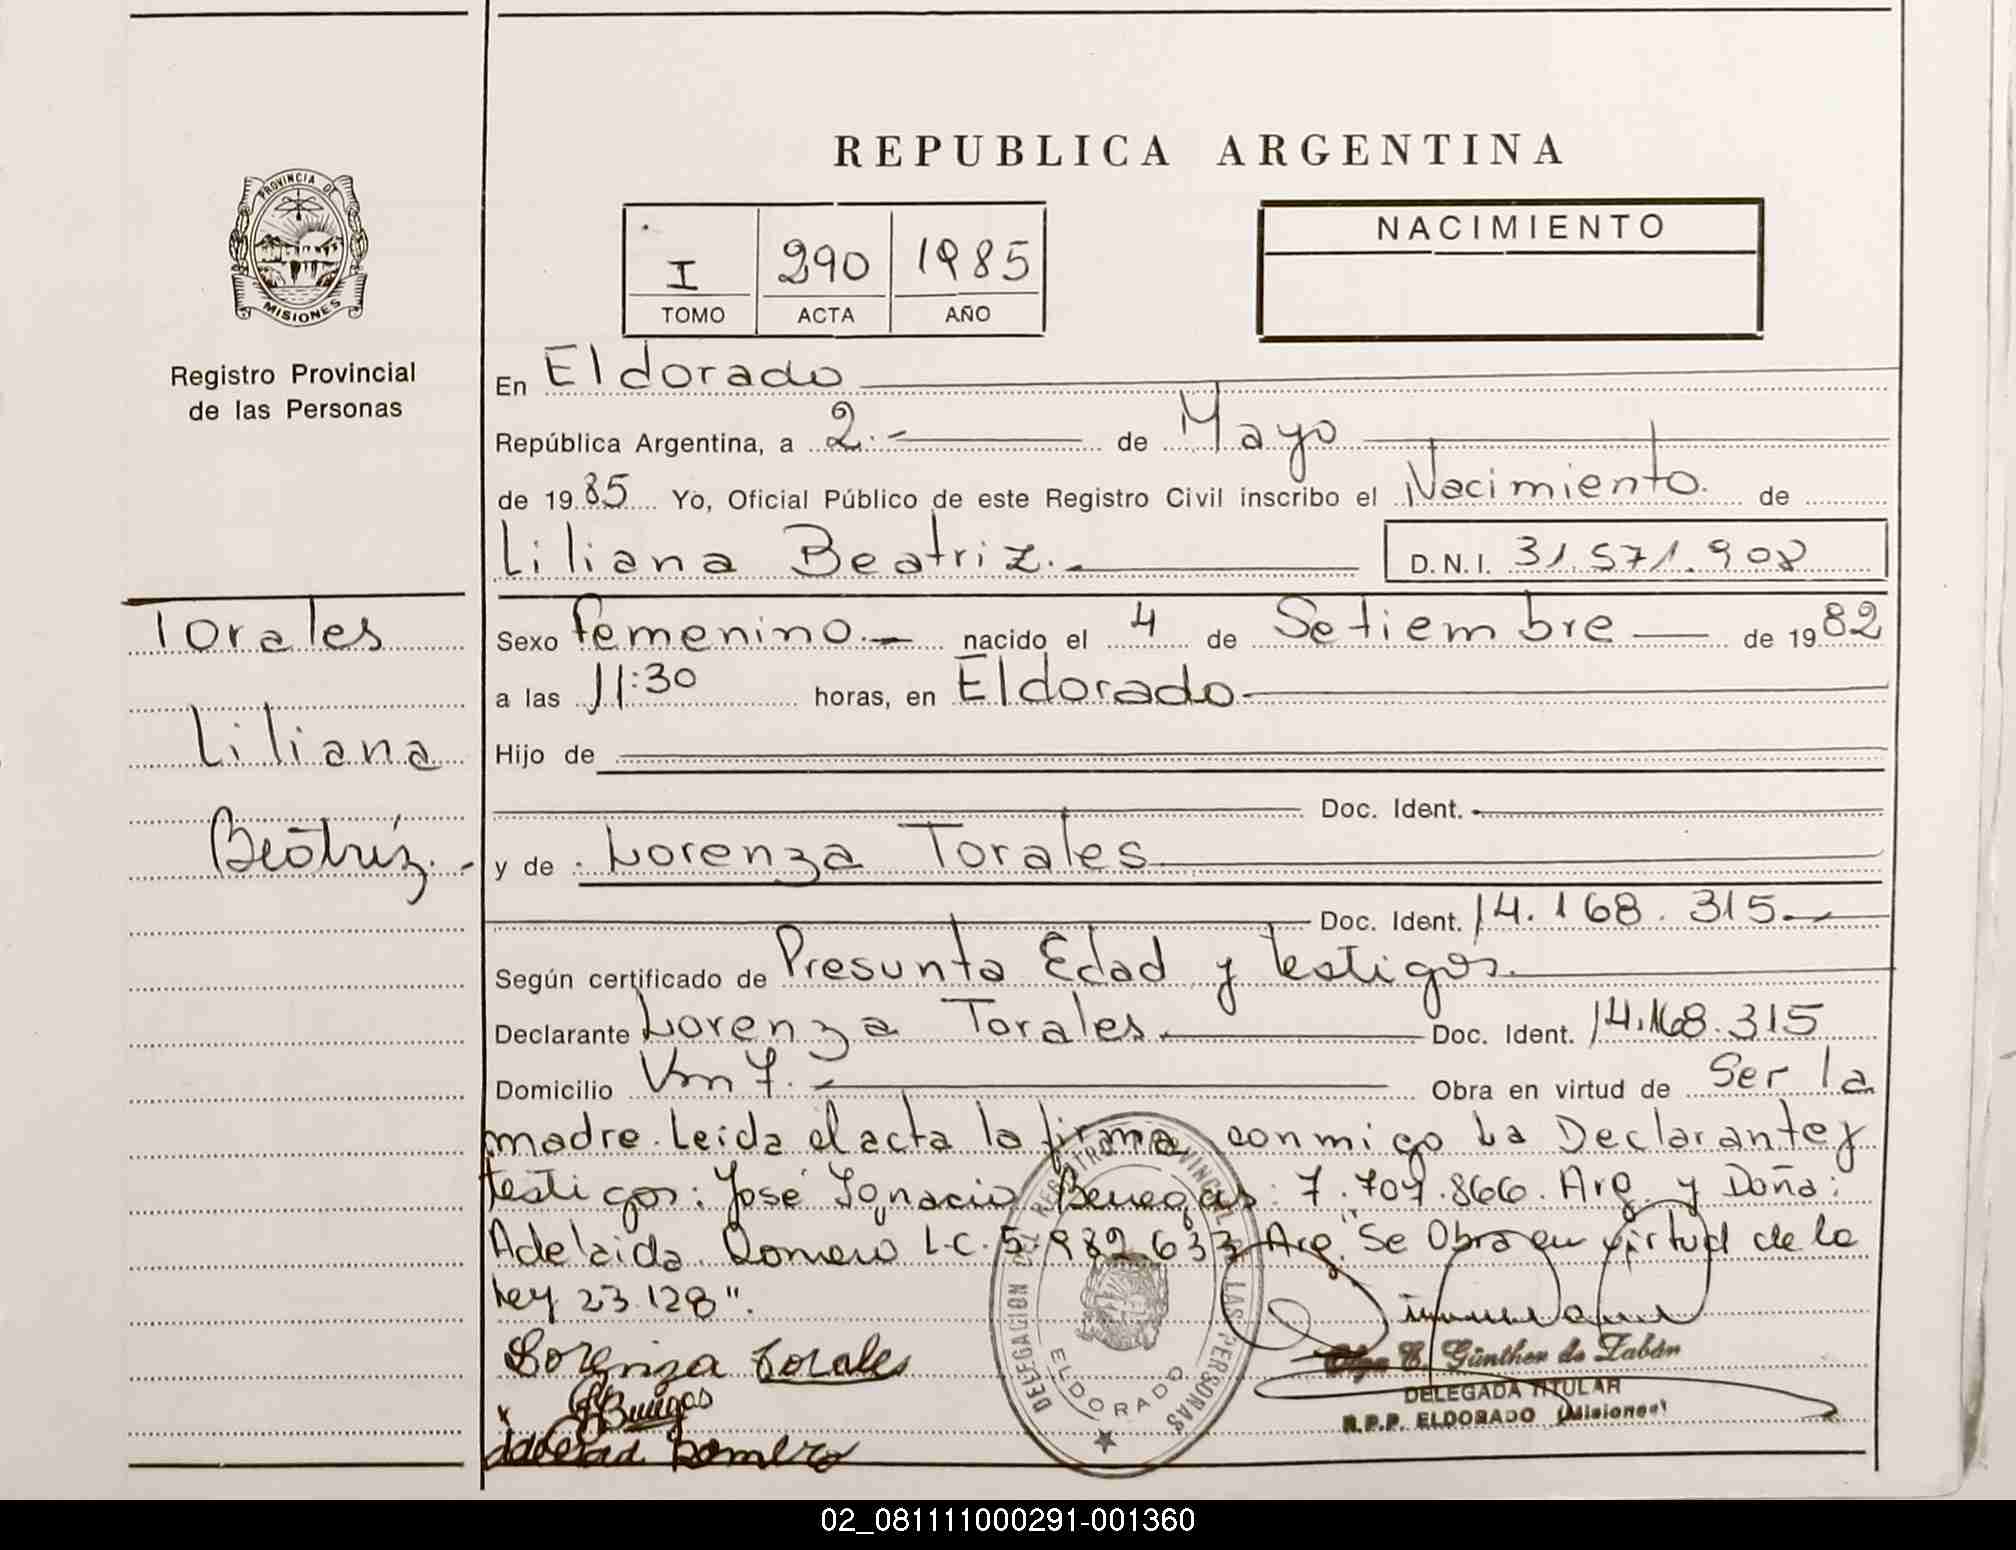 REPUBLICA ARGENTINA
PROVINCIA DE
MISIONES
Registro Provincial
de las Personas
I 290 1985
TOMO ACTA AÑO
NACIMIENTO
En Eldorado
República Argentina, a 2.- de Mayo
de 1985 Yo, Oficial Público de este Registro Civil inscribo el Nacimiento. de
Liliana Beatriz.- D.N.I. 31.571.908
Torales
Liliana
Beatriz.-
Sexo femenino.- nacido el 4 de Setiembre de 1982
a las 11:30 horas, en Eldorado
Hijo de
Doc. Ident.
y de Lorenza Torales
Doc. Ident. 14.168.315.-
Según certificado de Presunta Edad y testigos.
Declarante Lorenza Torales. Doc. Ident. 14.168.315
Domicilio Km 7.- Obra en virtud de Ser la
madre. Leída el acta la firma conmigo La Declarante y
testigos: José Ignacio Benegas: 7.707.866. Arg. y Doña:
Adelaida Romero L.C. 5.982.633 Arg. "Se Obra en virtud de la
ley 23.128".
Lorenza Torales
Benegas
Romero
DELEGACION DEL REGISTRO PROVINCIAL DE LAS PERSONAS
ELDORADO
Olga E. Günther de Zabán
DELEGADA TITULAR
R.P.P. ELDORADO (Misiones)
02_081111000291-001360